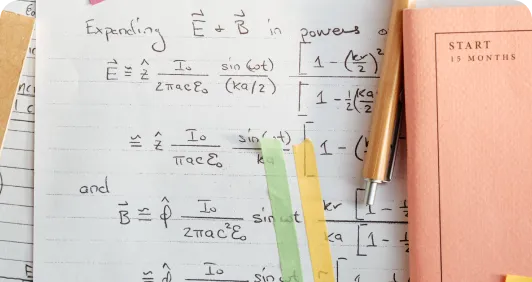 Expending E⃗ + B⃗ in powers
E⃗ ≅ ẑ I₀/(2πacε₀) sin(ωt)/(ka/2) [1 - (kr/2)²]/[1 - ½(ka/2
≅ ẑ I₀/(πacε₀) sin(ωt)/ka [1 - (
and
B⃗ ≅ φ̂ I₀/(2πac²ε₀) sin ωt kr[1 - ½/ka[1 - ½
≅ φ̂ I₀ sin
START
15 MONTHS